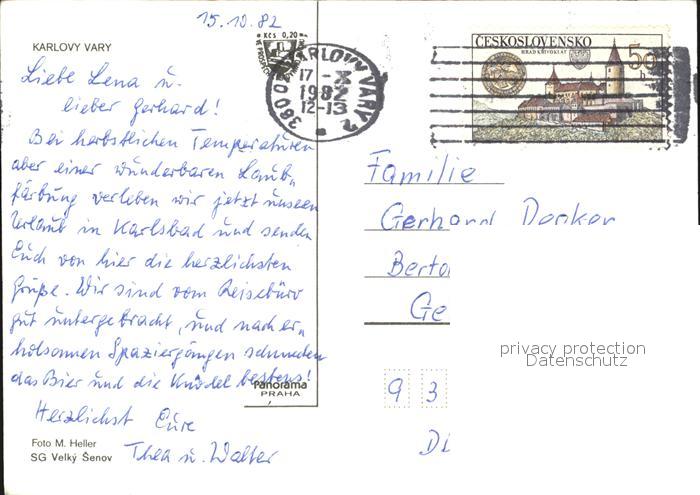 15.10.82
KARLOVY VARY
Liebe Lena u.
lieber Gerhard!
Bei herbstlichen Temperaturen
aber einer wunderbaren Laub-
färbung verleben wir jetzt unseren
Urlaub in Karlsbad und senden
Euch von hier die herzlichsten
Grüße. Wir sind vom Reisebüro
gut untergebracht, und nach er-
holsamen Spaziergängen schmecken
das Bier und die Knödel bestens!
Herzlichst Eure
Thea u. Walter
Foto M. Heller
SG Velký Šenov
Panorama
PRAHA
Kčs 0,20
360 0 KARLOVY VARY 2
17 -X
1982
12-13
ČESKOSLOVENSKO
HRAD KŘIVOKLÁT
50 h
Familie
Gerhard
Berta
Ge
privacy protection
Datenschutz
9 3